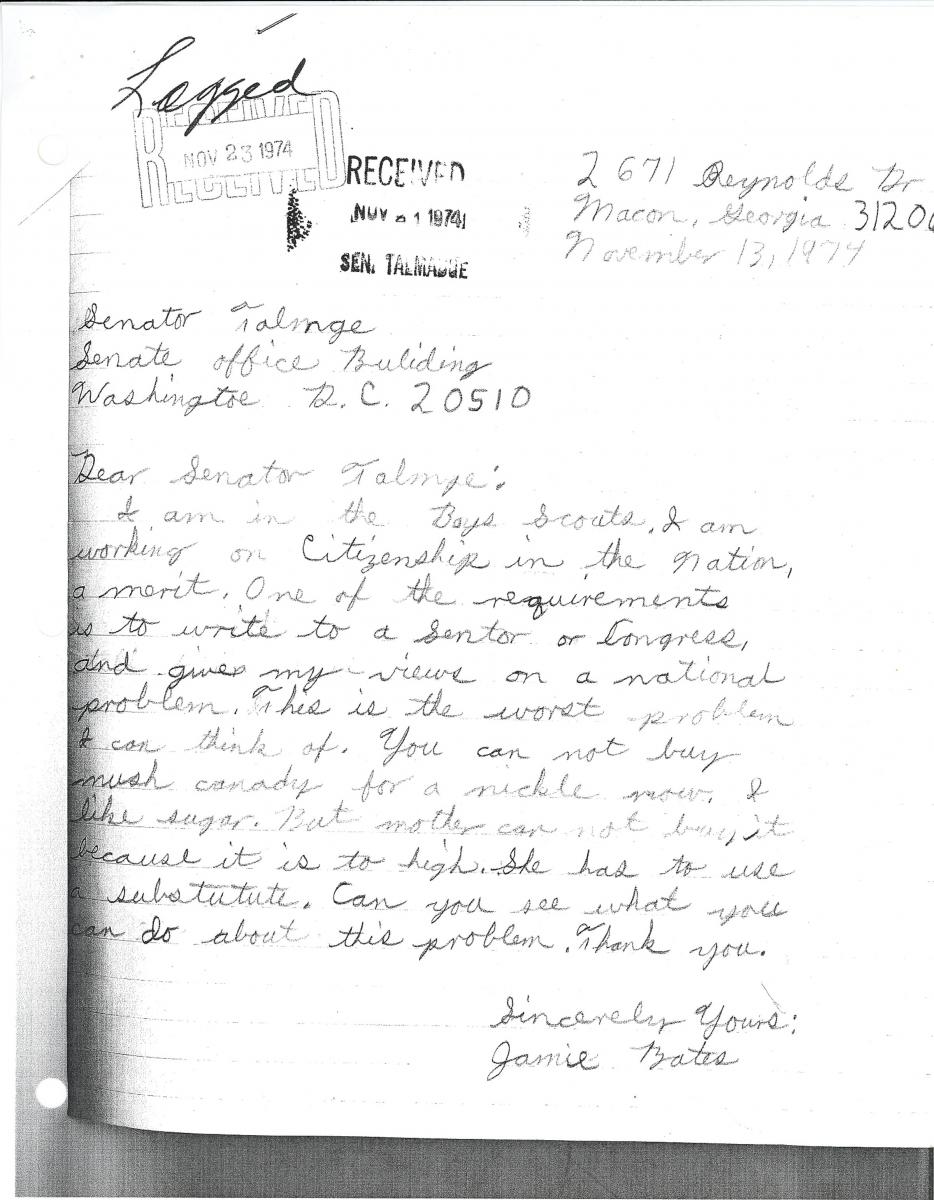 Logged
RECEIVED
NOV 23 1974
RECEIVED
RECEIVED
NOV 21 1974
SEN. TALMADGE
2671 Reynolds Dr
Macon, Georgia 3120
November 13, 1974
Senator Talmge
Senate office Buliding
Washingtoe D.C. 20510
Dear Senator Talmge:
I am in the Boys Scouts. I am
working on Citizenship in the Nation,
a merit. One of the requirements
is to write to a Sentor or Congress,
and give my views on a national
problem. This is the worst problem
I can think of. You can not buy
mush canady for a nickle now. I
like sugar. But mother can not buy it
because it is to high. She has to use
a substutute. Can you see what you
can do about this problem. Thank you.
Sincerely Yours:
Jamie Bates